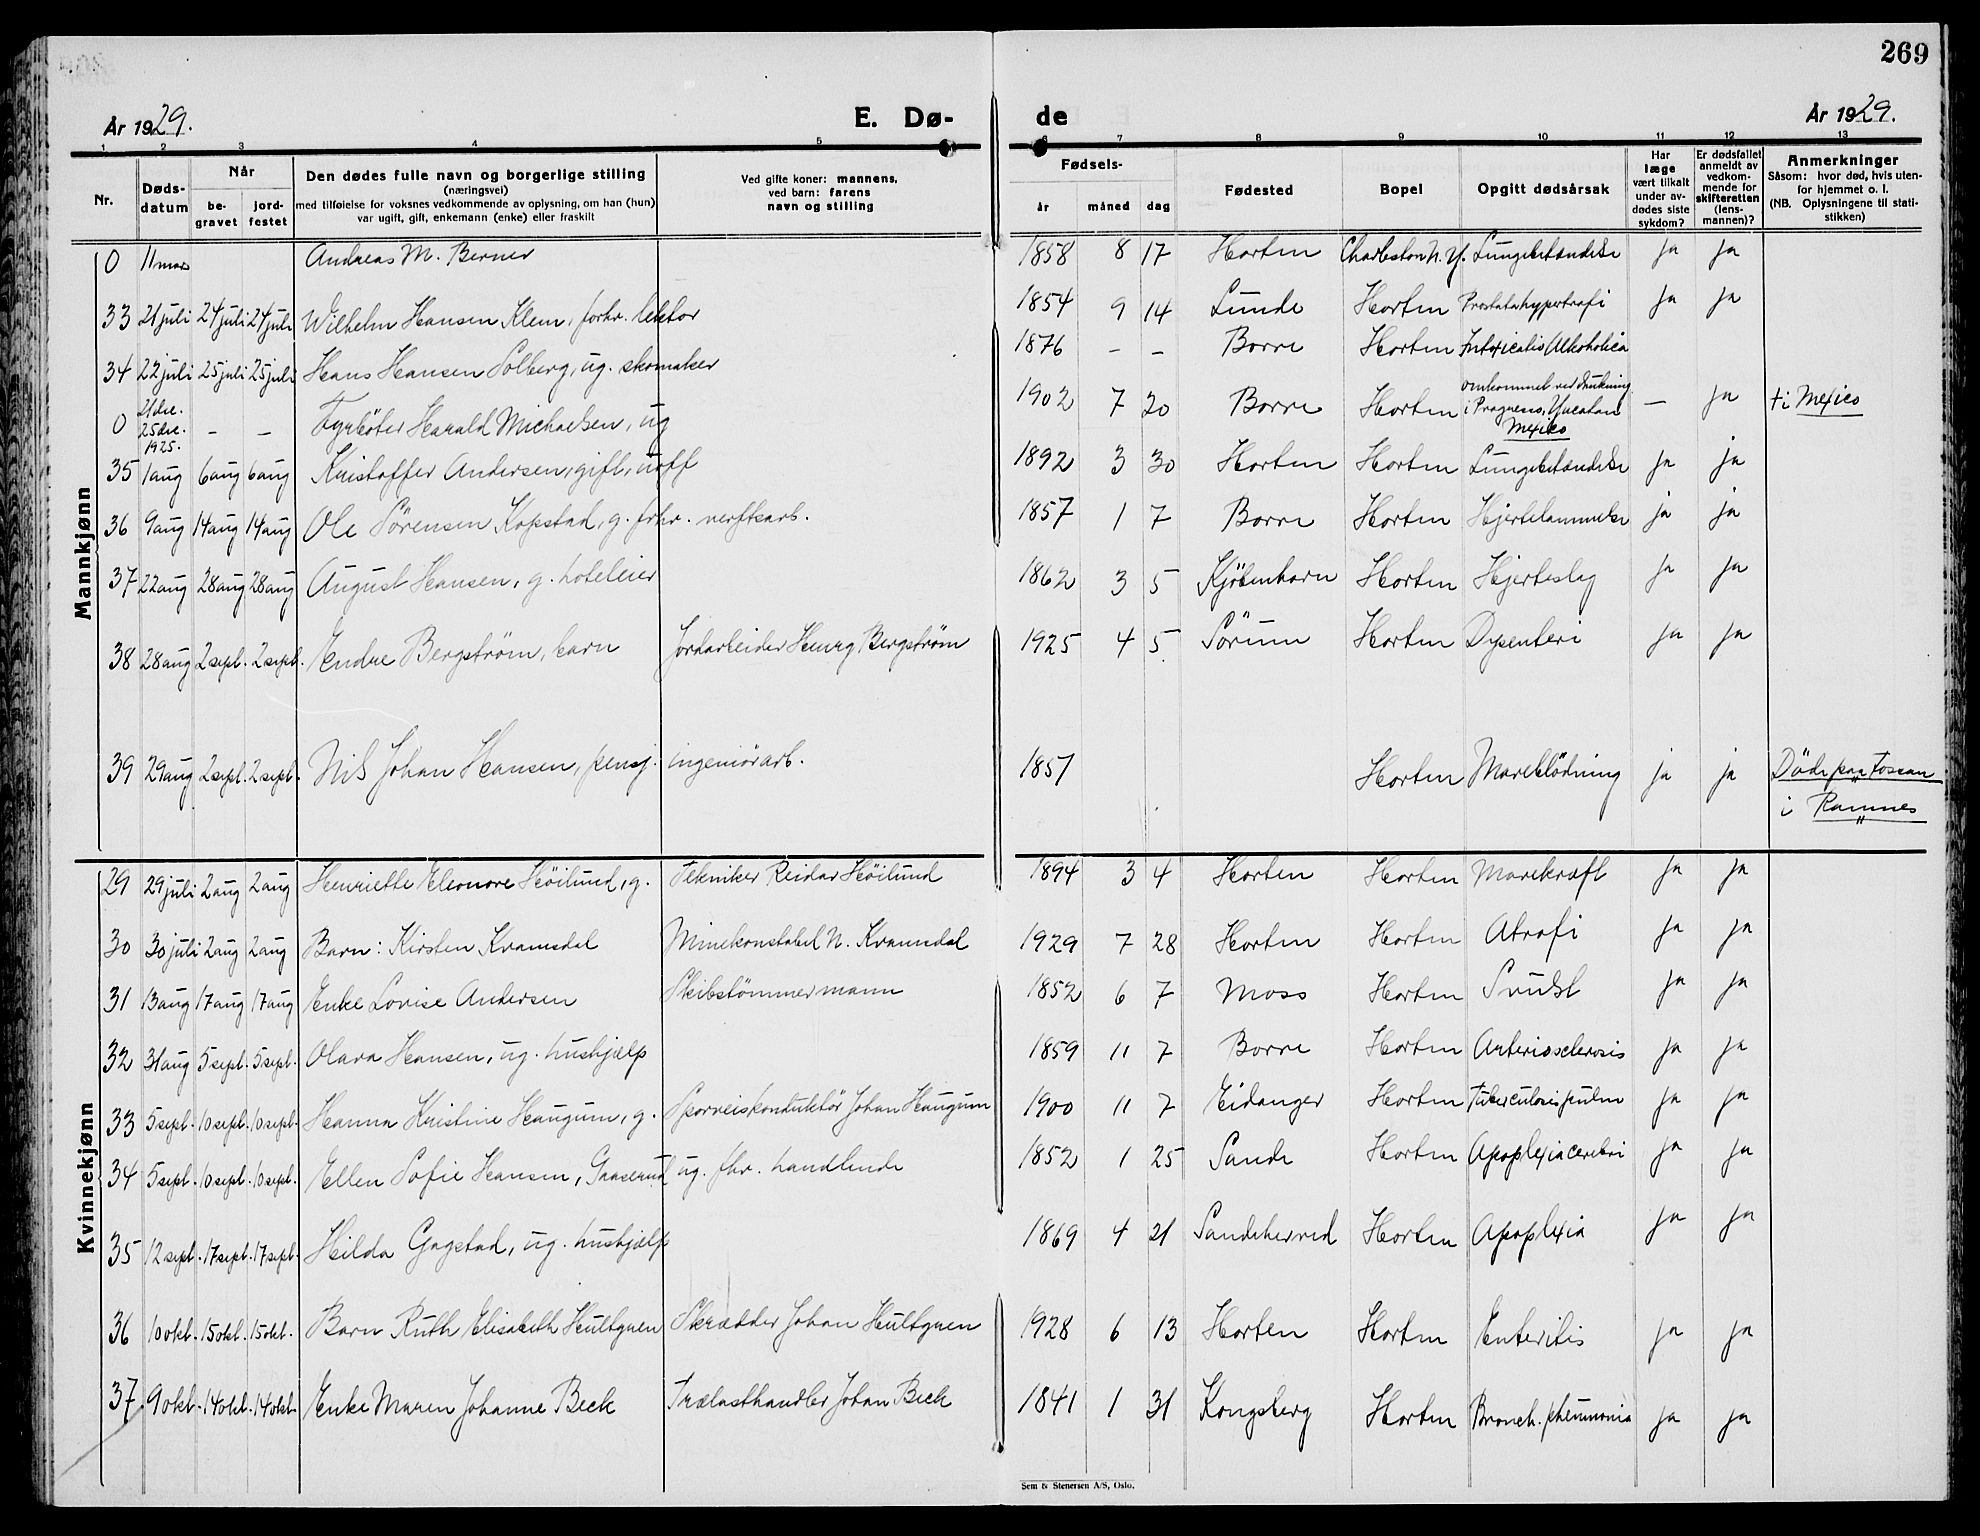 269
År 1929. E. Dø- de År 1929.
1 2 3 4 5 6 7 8 9 10 11 12 13
Nr. Døds-datum Når be-gravet jord-festet Den dødes fulle navn og borgerlige stilling (næringsvei) med tilføielse for voksnes vedkommende av oplysning, om han (hun) var ugift, gift, enkemann (enke) eller fraskilt Ved gifte koner: mannens, ved barn: farens navn og stilling Fødsels- år måned dag Fødested Bopel Opgitt dødsårsak Har læge vært tilkalt under av-dødes siste sykdom? Er dødsfallet anmeldt av vedkom-mende for skifteretten (lens-mannen)? Anmerkninger Såsom: hvor død, hvis uten-for hjemmet o. l. (NB. Oplysningene til stati-stikken)
Mannkjønn
0 11 mars Andreas M. Berner 1858 8 17 Horten Charleston N. Y. Lungebetændelse ja ja
33 21 juli 24 juli 24 juli Wilhelm Hansen Klem, forhv. lektor 1854 9 14 Lunde Horten Prostatahypertrofi ja ja
34 22 juli 25 juli 25 juli Hans Hansen Solberg, ug. skomaker 1876 - - Borre Horten Intoxicatio Alkoholica ja ja
0 21 de. 25 de. 1925. - - Fyrbøter Harald Michaelsen, ug 1902 7 20 Borre Horten omkommet ved drukning i Progreso, Yucatan Mexiko — ja ti Mexico
35 1 aug 6 aug 6 aug Kristoffer Andersen, gift, uoff 1892 3 30 Horten Horten Lungebetændelse ja ja
36 9 aug 14 aug 14 aug Ole Sörensen Kopstad, g. frhv. verftsarb. 1857 1 7 Borre Horten Hjertelammelse ja ja
37 22 aug 28 aug 28 aug August Hansen, g. hoteleier 1862 3 5 Kjöbenhavn Horten Hjerteslag ja ja
38 28 aug 2 sept. 2 sept. Endre Bergström, barn Jordarbeider Henry Bergström 1925 4 5 Sörum Horten Dysenteri ja ja
39 29 aug 2 sept. 2 sept. Nils Johan Hansen, pensj. ingeniörarb. 1857 Horten Maveblödning ja ja Döde paa Fossan
i Ramnes
Kvinnekjønn
29 29 juli 2 aug 2 aug Henriette Eleonore Höilund, g. Tekniker Reidar Höilund 1894 3 4 Horten Horten Mavekræft ja ja
30 30 juli 2 aug 2 aug Barn: Kirsten Kramsdal Minekonstabel N. Kramsdal 1929 7 28 Horten Horten Atrofi ja ja
31 13 aug 17 aug 17 aug Enke Lovise Andersen Skibstömmermann 1852 6 7 Moss Horten Svulst ja ja
32 31 aug 5 sept. 5 sept. Olava Hansen, ug. hushjælp 1859 11 7 Borre Horten Arteriosclerosis ja ja
33 5 sept. 10 sept. 10 sept. Hanna Kristine Haugum, g. Sporveiskonduktör Johan Haugum 1900 11 7 Eidanger Horten Tuberculosis pulm ja ja
34 5 sept. 10 sept. 10 sept. Ellen Sofie Hansen, Gaaserud ug. fhv. handlende 1852 1 25 Sande Horten Apoplexia cerebri ja ja
35 12 sept. 17 sept. 17 sept. Hilda Gogstad, ug. hushjælp 1869 4 21 Sandeherred Horten Apoplexia ja ja
36 10 okt. 15 okt. 15 okt. Barn Ruth Elisabeth Hultgren Skrædder Johan Hultgren 1928 6 13 Horten Horten Enteritis ja ja
37 9 okt. 14 okt. 14 okt. Enke Maren Johanne Beck Trælasthandler Johan Beck 1841 1 31 Kongsberg Horten Bronch. pheumonia ja ja
Sem & Stenersen A/S, Oslo.